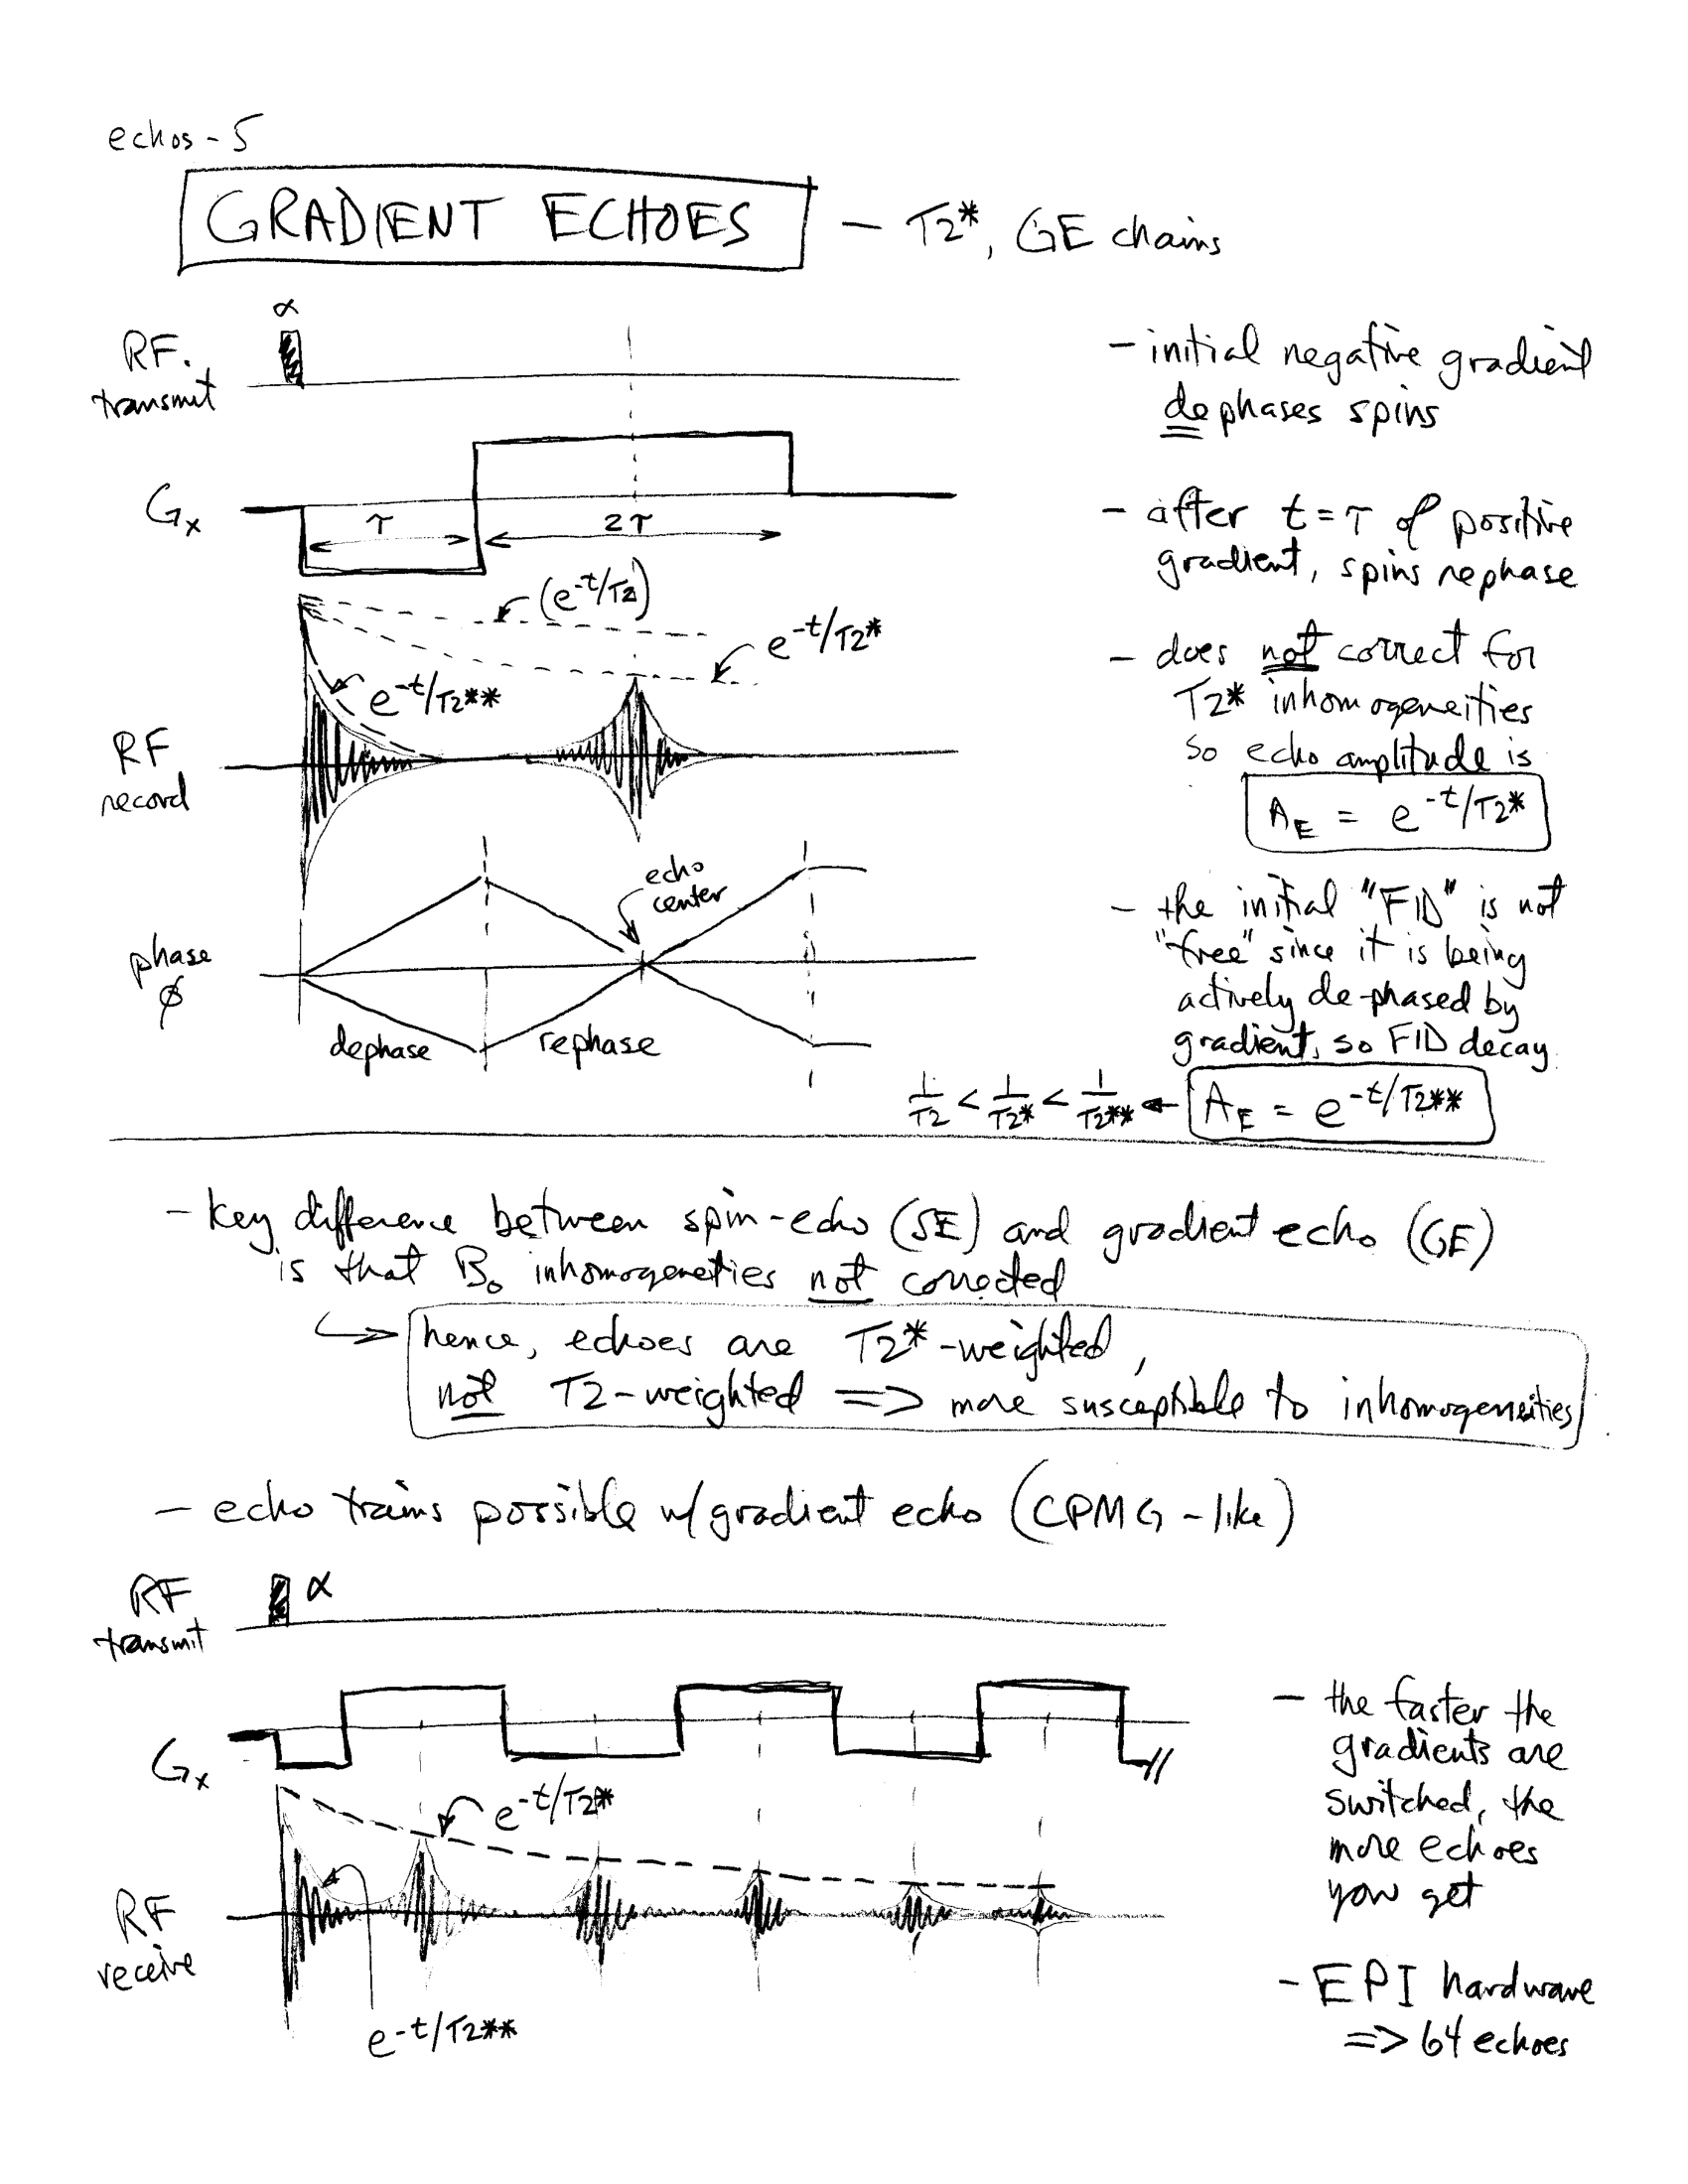 echos-5
GRADIENT ECHOES — T2*, GE chains
α
RF.
transmit
Gx
τ
2τ
(e-t/T2)
e-t/T2*
e-t/T2**
RF
record
echo
center
phase
ϕ
dephase
rephase
- initial negative gradient
dephases spins
- after t=τ of positive
gradient, spins rephase
- does not correct for
T2* inhomogeneities
so echo amplitude is
AE = e-t/T2*
- the initial "FID" is not
"free" since it is being
actively de-phased by
gradient, so FID decay
1/T2 < 1/T2* < 1/T2** ← AE = e-t/T2**
- key difference between spin-echo (SE) and gradient echo (GE)
is that B0 inhomogeneties not corrected
↳ hence, echoes are T2*-weighted,
not T2-weighted => more susceptible to inhomogeneities
- echo trains possible w/ gradient echo (CPMG-like)
RF
transmit
α
Gx
e-t/T2*
RF
receive
e-t/T2**
- the faster the
gradients are
switched, the
more echoes
you get
- EPI hardware
=> 64 echoes